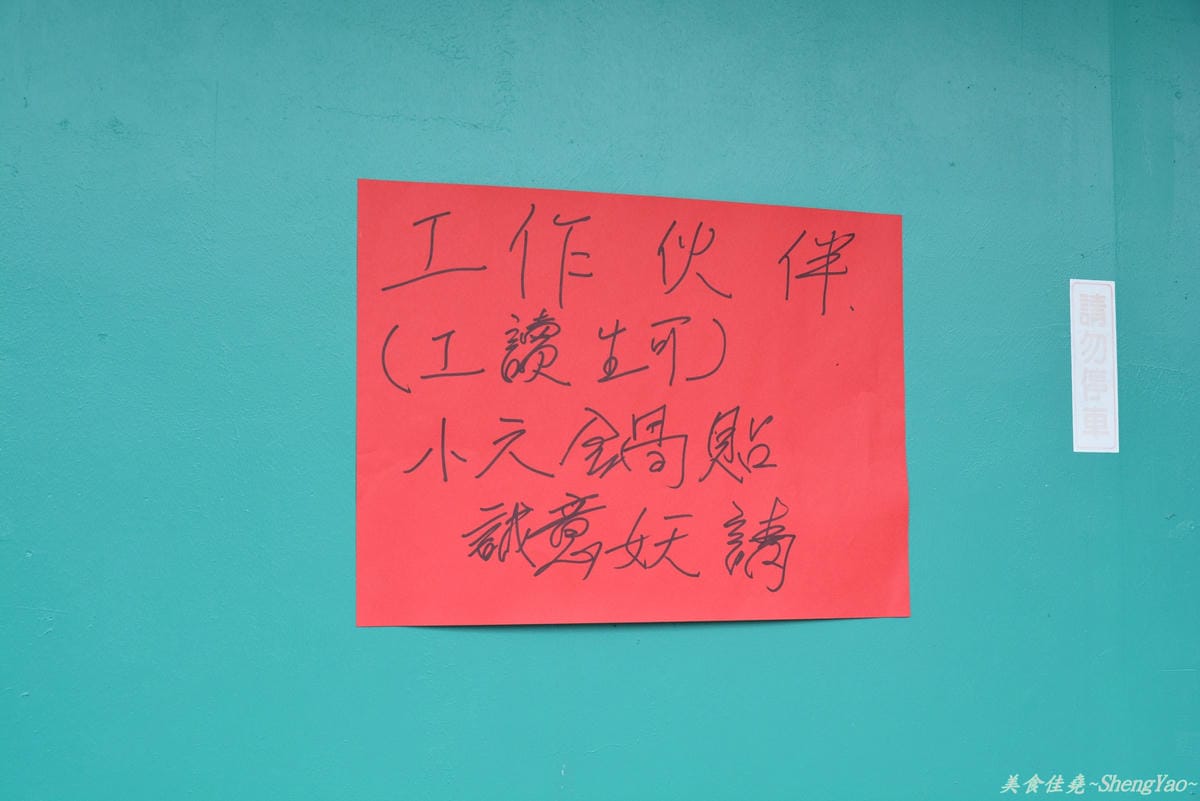 工作伙伴、
(工讀生可)
小元鍋貼
誠意妖請
請勿停車
美食佳堯~ShengYao~